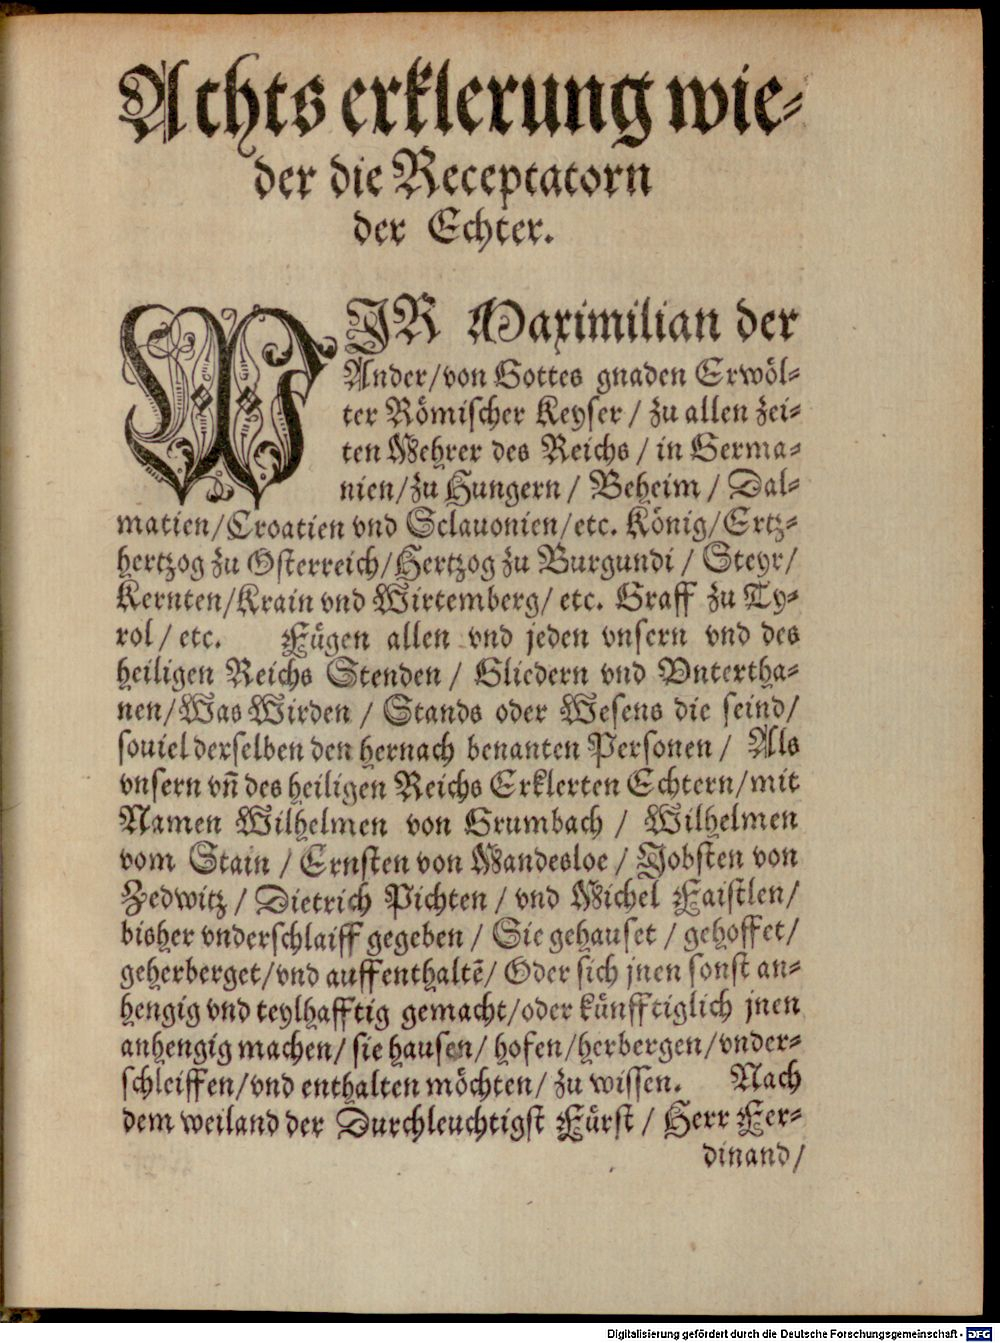 Achts erklerung wie-
der die Receptatorn
der Echter.
WIR Maximilian der
Ander/von Gottes gnaden Erwöl-
ter Römischer Keyser / zu allen zei-
ten Mehrer des Reichs / in Germa-
nien/zu Hungern / Beheim / Dal-
matien/Croatien vnd Sclauonien/etc. König/Ertz-
hertzog zu Osterreich/Hertzog zu Burgundi / Steyr/
Kernten/Krain vnd Wirtemberg/ etc. Graff zu Ty-
rol / etc. Fügen allen vnd jeden vnsern vnd des
heiligen Reichs Stenden / Gliedern vnd Vntertha-
nen/Was Wirden / Stands oder Wesens die seind/
souiel derselben den hernach benanten Personen / Als
vnsern vñ des heiligen Reichs Erklerten Echtern/mit
Namen Wilhelmen von Grumbach / Wilhelmen
vom Stain / Ernsten von Mandesloe / Jobsten von
Zedwitz / Dietrich Pichten / vnd Michel Faistlen/
bisher vnderschlaiff gegeben / Sie gehauset / gehoffet/
geherberget/vnd auffenthaltē/ Oder sich jnen sonst an-
hengig vnd teylhafftig gemacht/oder künfftiglich jnen
anhengig machen/ sie hausen/ hofen/herbergen/vnder-
schleiffen/vnd enthalten möchten/ zu wissen. Nach
dem weiland der Durchleuchtigst Fürst / Herr Fer-
dinand/
Digitalisierung gefördert durch die Deutsche Forschungsgemeinschaft - DFG